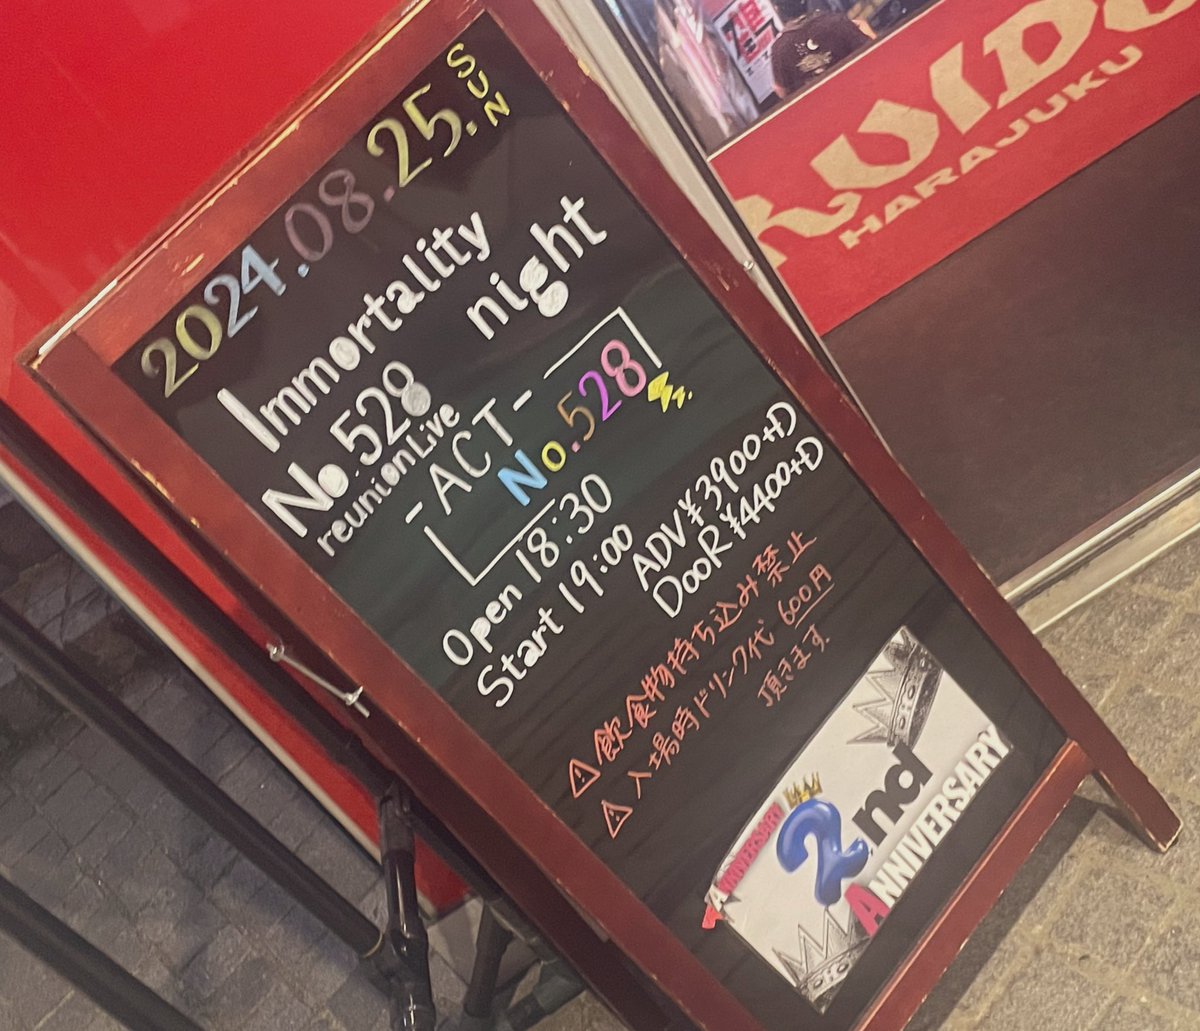 2024.08.25.SUN
Immortality
night
No.528
reunionLive
-ACT-
No.528
Open 18:30
Start 19:00
ADV ¥3900+D
DooR ¥4400+D
⚠飲食物持ち込み禁止
⚠入場時ドリンク代600円
頂きます.
ANNIVERSARY
2nd
ANNIVERSARY
RUIDO
HARAJUKU